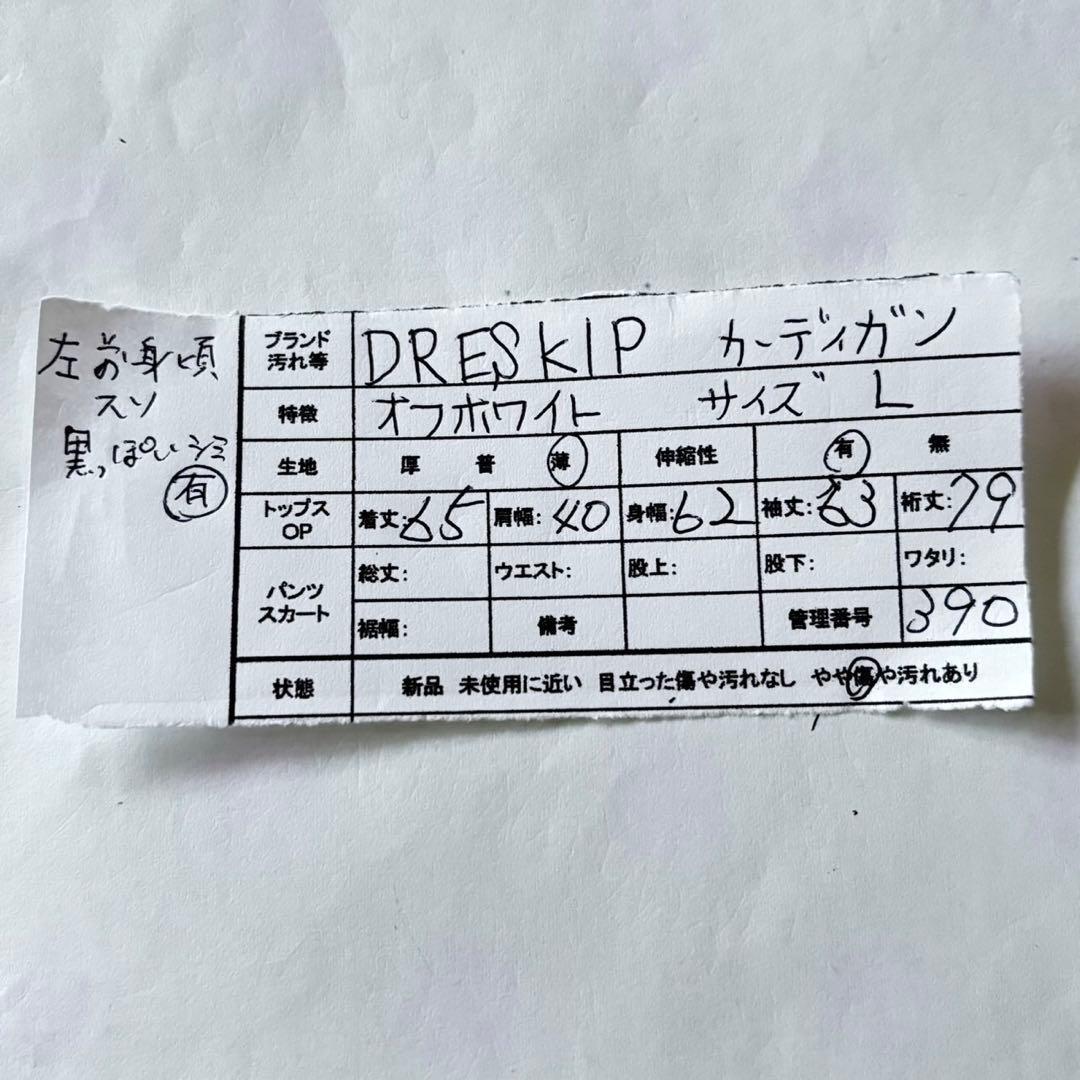 左お身頃
スソ
黒っぽいシミ
有
ブランド
汚れ等
DRESKIP カーディガン
特徴
オフホワイト サイズ L
生地 厚 普 薄 伸縮性 有 無
トップス
OP
着丈:65 肩幅:40 身幅:62 袖丈:63 裄丈:79
パンツ
スカート
総丈: ウエスト: 股上: 股下: ワタリ:
裾幅: 備考 管理番号 390
状態 新品 未使用に近い 目立った傷や汚れなし やや傷や汚れあり